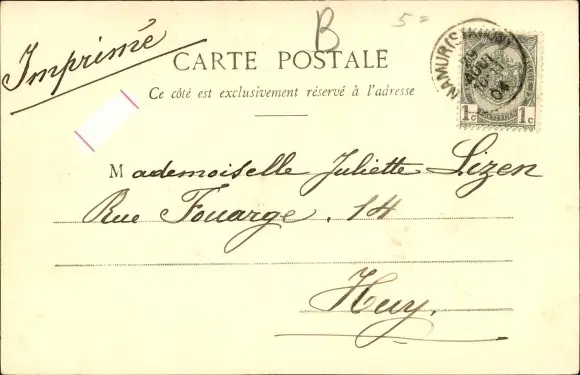 Imprimé
B
5=
CARTE POSTALE
Ce côté est exclusivement réservé à l'adresse
NAMUR
04
1c 1c
Mademoiselle Juliette Lizen
Rue Fouarge, 14
Huy.